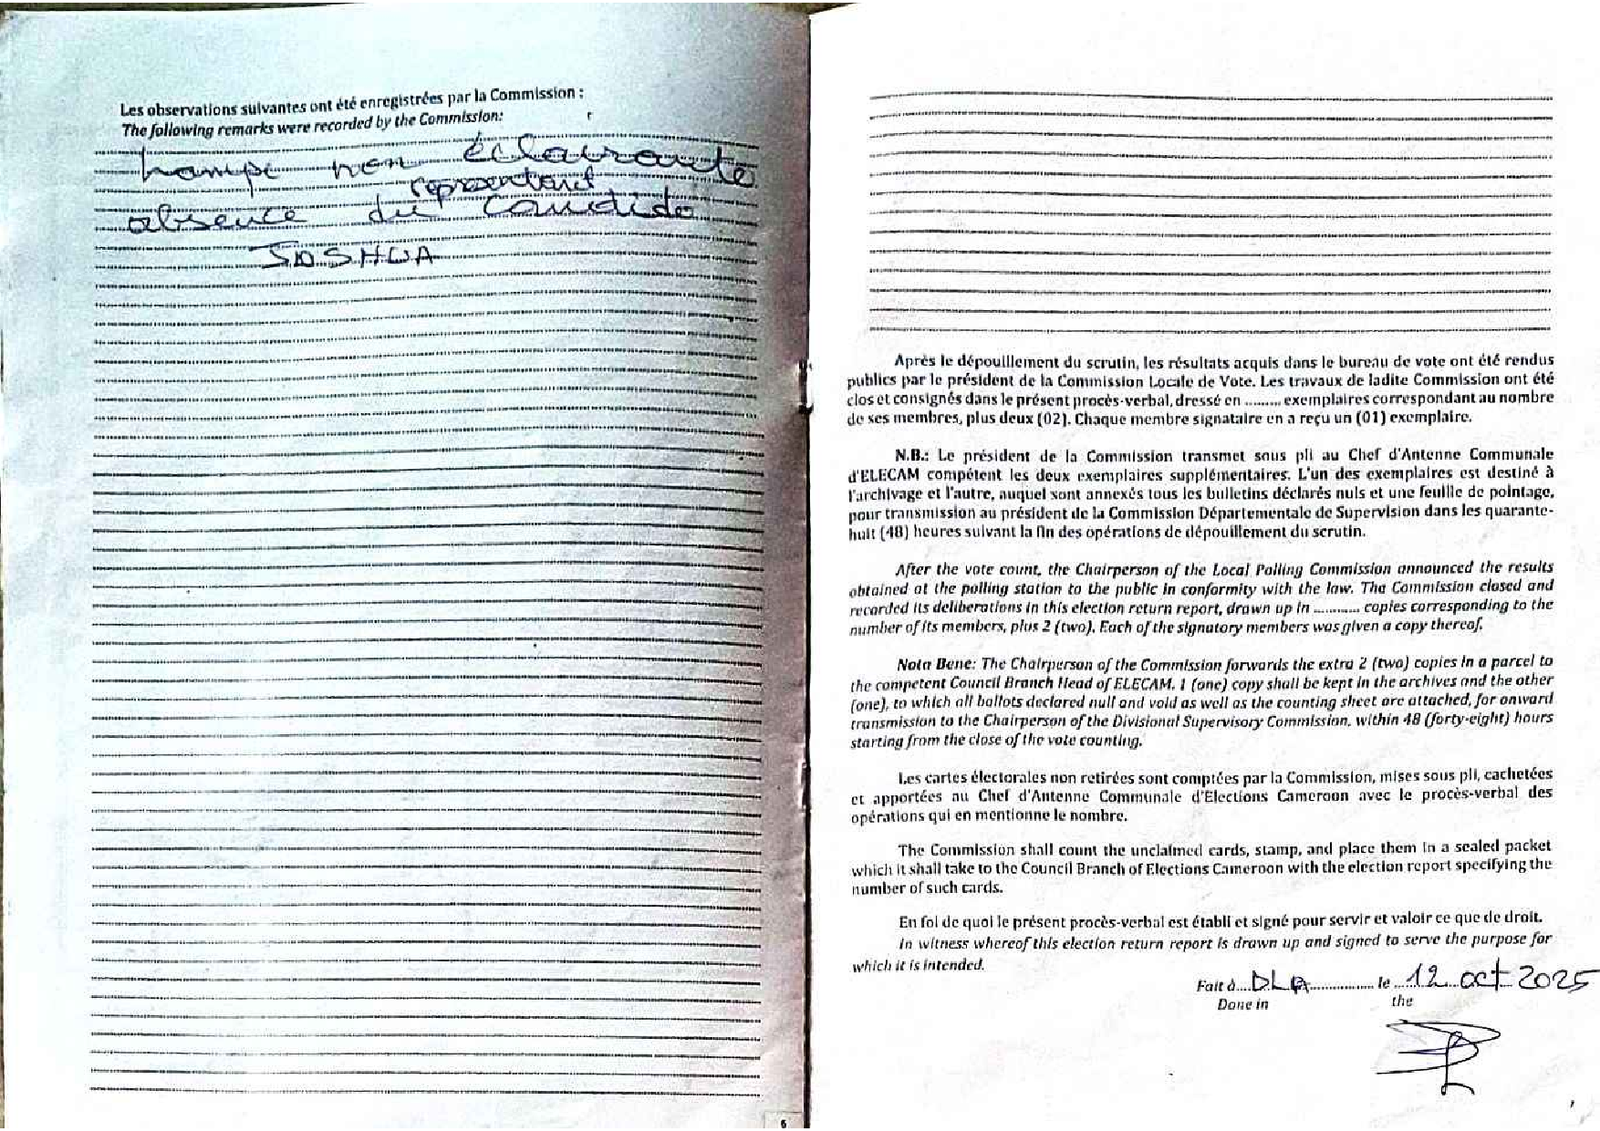 Les observations suivantes ont été enregistrées par la Commission :
The following remarks were recorded by the Commission:
Lampe non éclairante
représentant
absence du candidat
JOSHUA
6
Après le dépouillement du scrutin, les résultats acquis dans le bureau de vote ont été rendus
publics par le président de la Commission Locale de Vote. Les travaux de ladite Commission ont été
clos et consignés dans le présent procès-verbal, dressé en ......... exemplaires correspondant au nombre
de ses membres, plus deux (02). Chaque membre signataire en a reçu un (01) exemplaire.
N.B.: Le président de la Commission transmet sous pli au Chef d'Antenne Communale
d'ELECAM compétent les deux exemplaires supplémentaires. L'un des exemplaires est destiné à
l'archivage et l'autre, auquel sont annexés tous les bulletins déclarés nuls et une feuille de pointage,
pour transmission au président de la Commission Départementale de Supervision dans les quarante-
huit (48) heures suivant la fin des opérations de dépouillement du scrutin.
After the vote count, the Chairperson of the Local Polling Commission announced the results
obtained at the polling station to the public in conformity with the law. The Commission closed and
recorded its deliberations in this election return report, drawn up in ........... copies corresponding to the
number of its members, plus 2 (two). Each of the signatory members was given a copy thereof.
Nota Bene: The Chairperson of the Commission forwards the extra 2 (two) copies in a parcel to
the competent Council Branch Head of ELECAM. 1 (one) copy shall be kept in the archives and the other
(one), to which all ballots declared null and void as well as the counting sheet are attached, for onward
transmission to the Chairperson of the Divisional Supervisory Commission, within 48 (forty-eight) hours
starting from the close of the vote counting.
Les cartes électorales non retirées sont comptées par la Commission, mises sous pli, cachetées
et apportées au Chef d'Antenne Communale d'Elections Cameroon avec le procès-verbal des
opérations qui en mentionne le nombre.
The Commission shall count the unclaimed cards, stamp, and place them in a sealed packet
which it shall take to the Council Branch of Elections Cameroon with the election report specifying the
number of such cards.
En foi de quoi le présent procès-verbal est établi et signé pour servir et valoir ce que de droit.
In witness whereof this election return report is drawn up and signed to serve the purpose for
which it is intended.
Fait à DLA le 12 oct 2025
Done in the